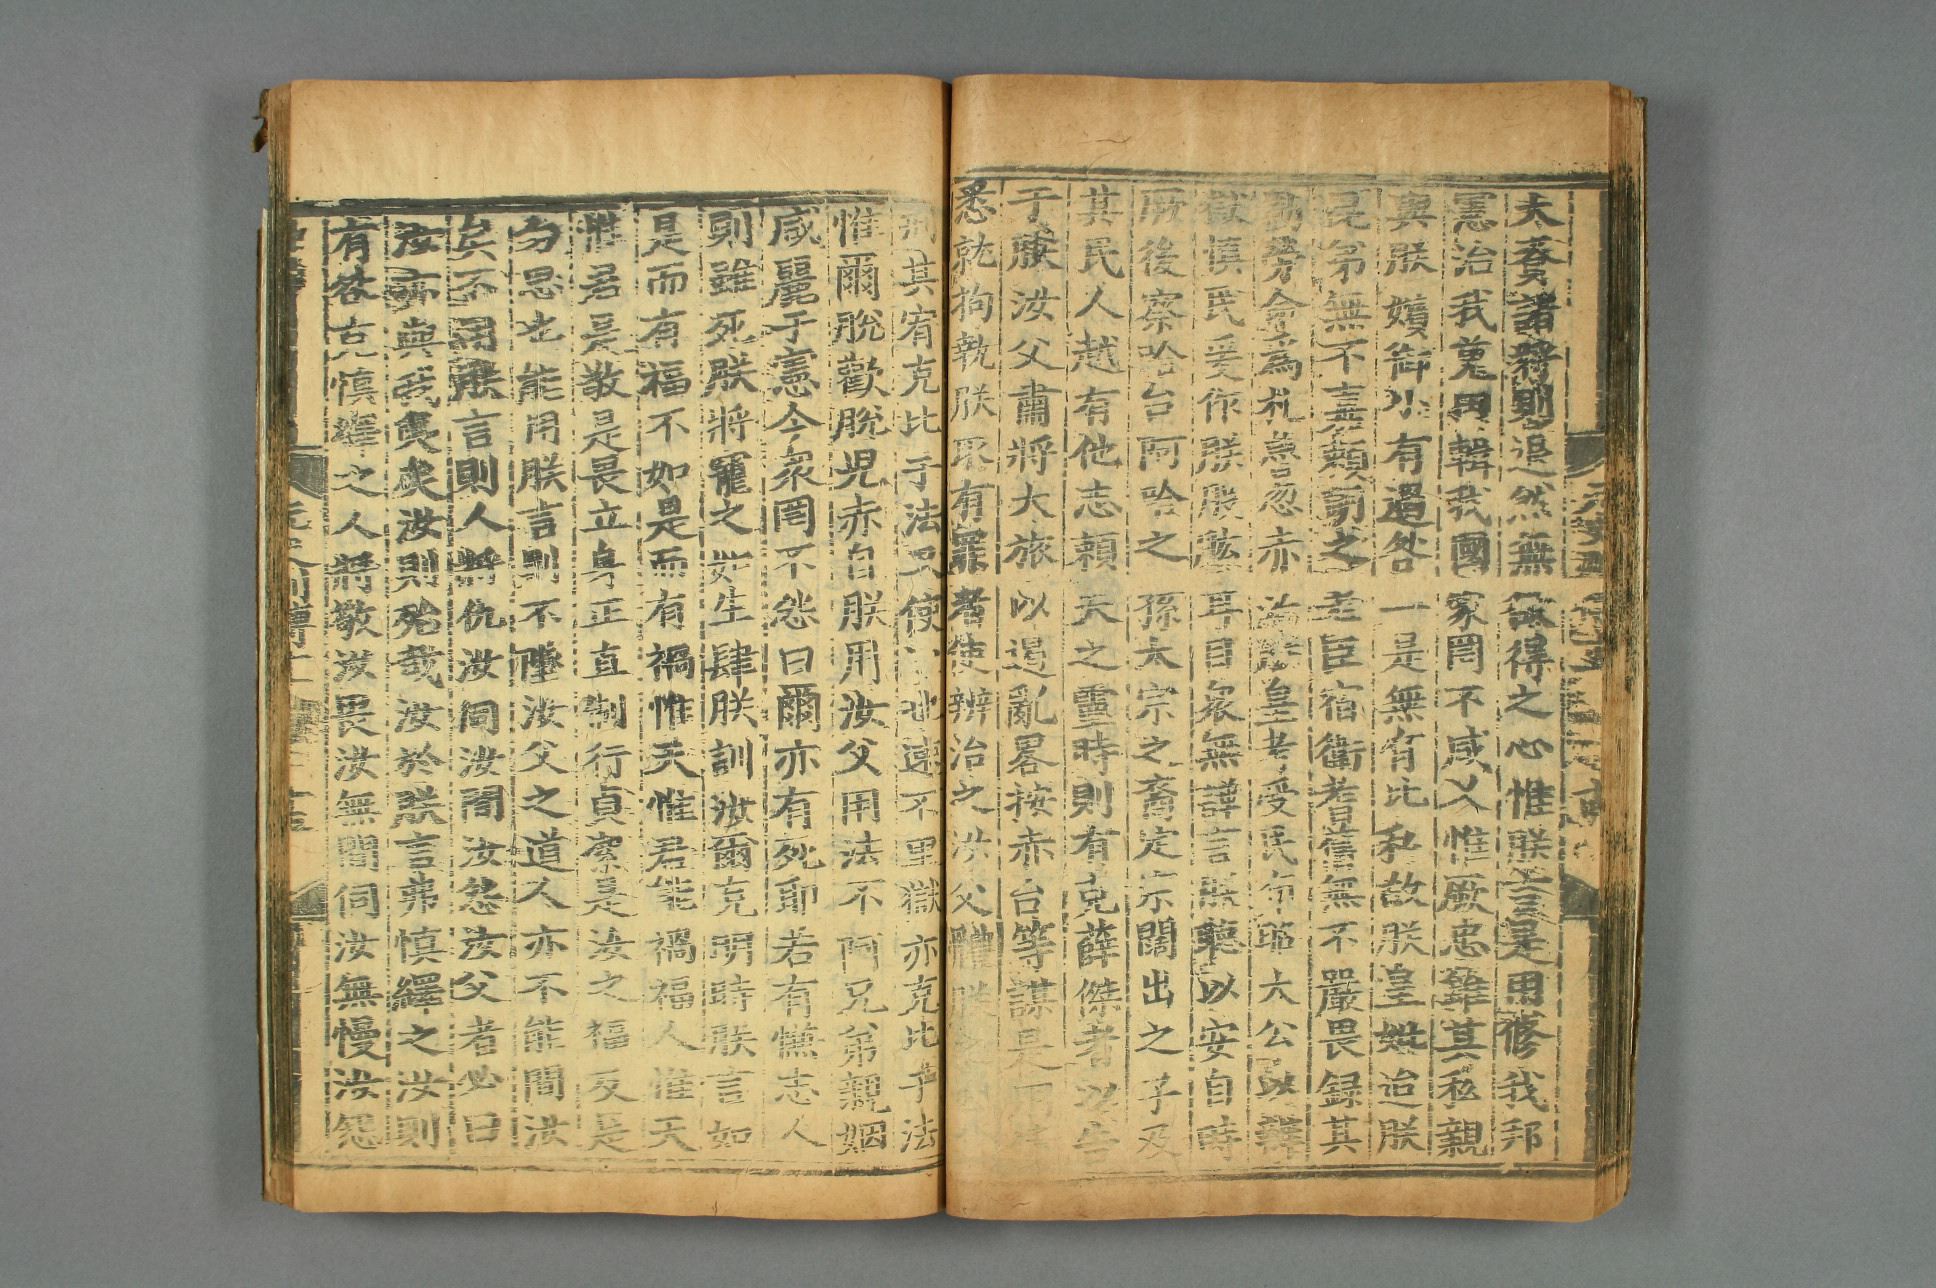 大賚諸將則追然無敢得之心惟朕言是用修我邦
憲治我蒐田輯我國家罔不咸乂惟厥忠雖其私親
與朕嬪御小有過咎一是無有比私故朕皇妣迨朕
昆弟無不嘉賴之老臣宿衞耆舊無不嚴畏録其
勞命為札忽亦皇考受民大公以
獄慎民爰作朕股肱耳目衆無譁言朕聽以安自時
厥後察哈台阿哈之孫太宗之裔定宗闊出之子及
其民人越有他志賴天之靈時則有克薛傑者以告
于朕汝父肅將大旅以遏亂畧按赤台等謀是用
悉就拘執朕取有罪者使辨治之汝父體朕
其宥克比于法又使速不里獄亦克比于法
惟爾脫歡脫兒赤自朕用汝父用法不阿兄弟親姻
咸麗于憲今衆罔不怨曰爾亦有死耶若有慊志人
則雖死朕將寵之如生肆朕訓汝爾克明時朕言如
是而有福不如是而有禍惟天惟君能禍福人惟天
惟君是敬是畏立身正直制行貞潔是汝之福反是
勿思也能用朕言則不墮汝父之道人亦不能間汝
矣不用朕言則人將仇汝伺汝間汝怨汝父者必曰
汝亦與我夷矣汝則殆哉汝於朕言弗慎繹之汝則
有咎克慎繹之人將敬汝畏汝無間伺汝無慢汝怨